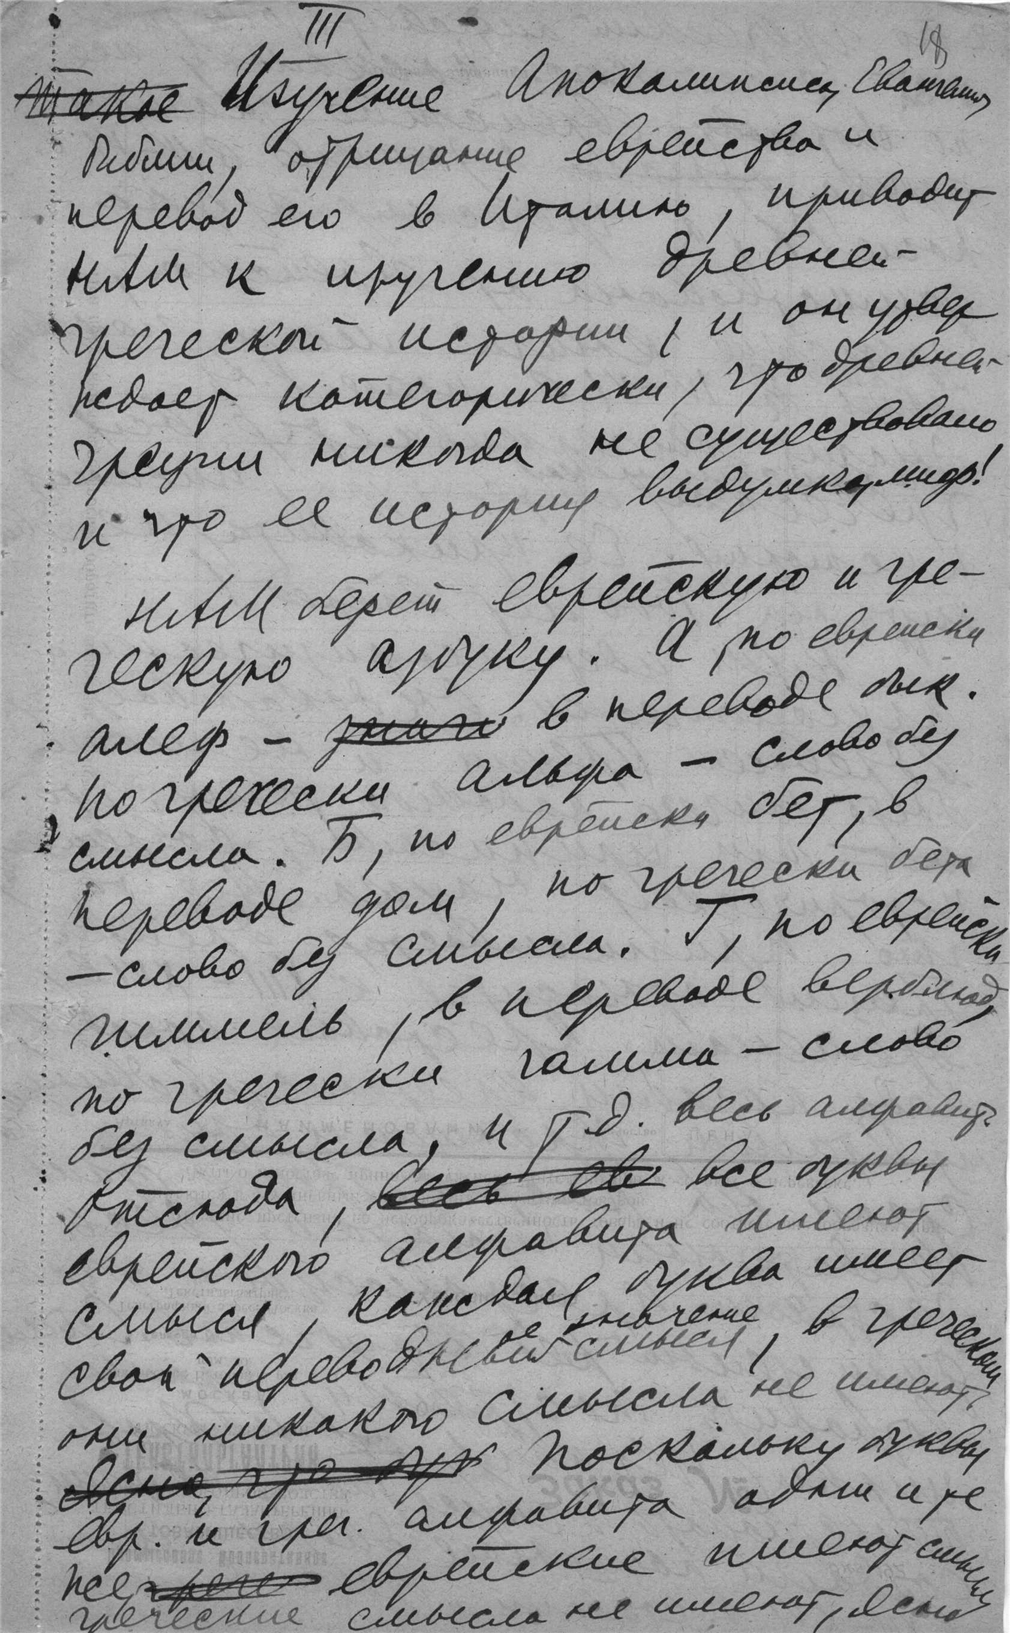 III
18
~~Такое~~ Изучение Апокалипсиса, Евангелия,
библии, отрицание еврейства и
перевод его в Италию, приводит
НАМ к изучению древней
греческой истории, и он утвер
ждает категорически, что древней
греции никогда не существовало,
и что ее история выдумка, миф!
НАМ берет еврейскую и гре-
ческую азбуку. А, по еврейски
алеф – ~~значи~~ в переводе бык.
по гречески альфа – слово без
смысла. Б, по еврейски бет, в
переводе дом, по гречески бета
– слово без смысла. Г, по еврейски
гиммель, в переводе верблюд,
по гречески гамма – слово
без смысла, и т.д. весь алфавит.
Отсюда, ~~весь ев~~ все буквы
еврейского алфавита имеют
смысл, каждая буква имеет
ое значение
свой переводный смысл, в греческом
они никакого смысла не имеют.
~~Ясно, что бук~~ Поскольку буквы
евр. и греч. алфавита одни и те
же ~~грече~~ еврейские имеют смысл
греческие смысла не имеют, ясно